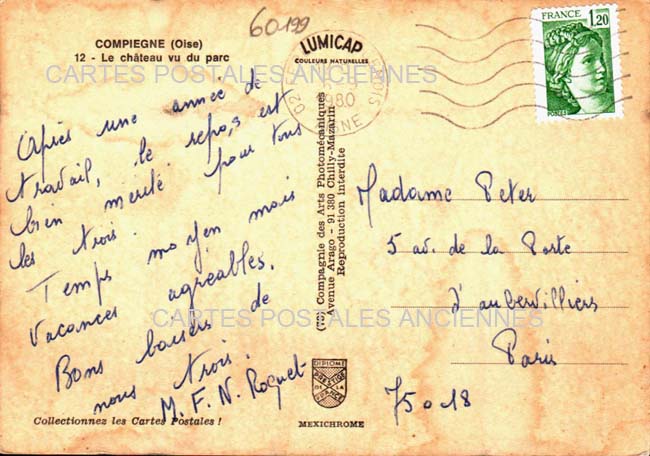 60199
COMPIEGNE (Oise)
12 - Le château vu du parc
LUMICAP
COULEURS NATURELLES
CARTES POSTALES ANCIENNES
Après une année de
travail, le repos est
bien mérité pour tous
les trois.
Temps moyen mais
Vacances agréables.
Bons baisers de
nous trois.
M. F. N. Roquet
Collectionnez les Cartes Postales !
(75) Compagnie des Arts Photomécaniques
Avenue Arago - 91 380 Chilly-Mazarin
Reproduction Interdite
DIPLOME
PRESTIGE
DE LA
FRANCE
MEXICHROME
02
1980
AISNE
FRANCE
1,20
POSTES
Madame Peter
5 av. de la Porte
d'aubervilliers
Paris
75018
CARTES POSTALES ANCIENNES